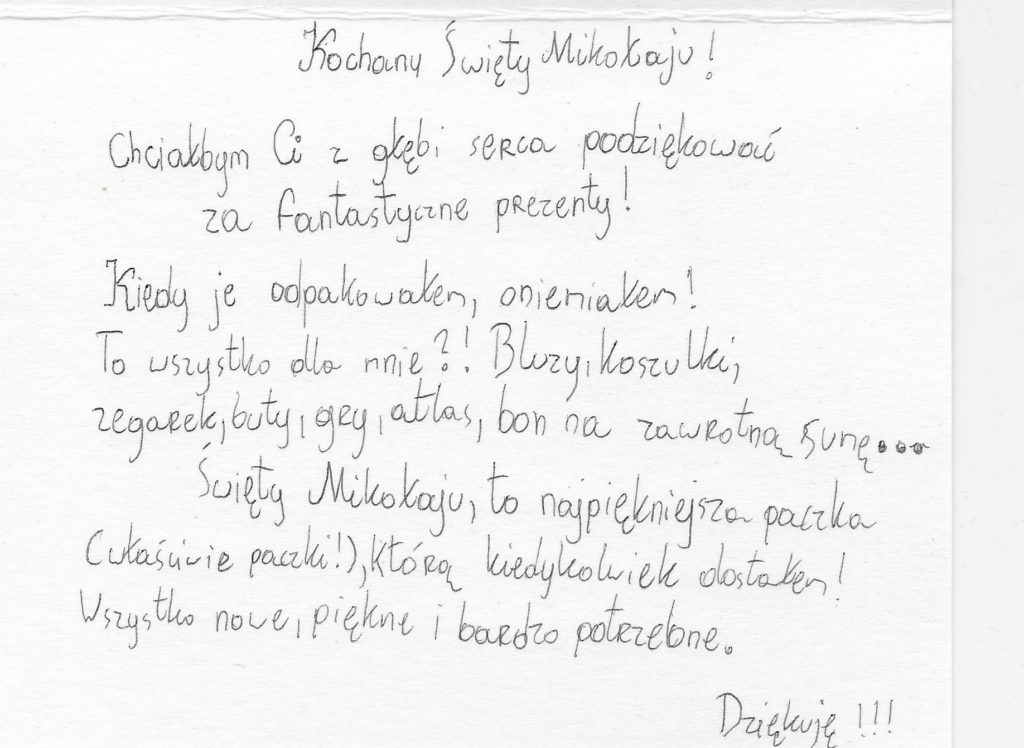 Kochany Święty Mikołaju!
Chciałbym Ci z głębi serca podziękować
za fantastyczne prezenty!
Kiedy je odpakowałem, oniemiałem!
To wszystko dla mnie?! Bluzy, koszulki,
zegarek, buty, gry, atlas, bon na zawrotną sumę...
Święty Mikołaju, to najpiękniejsza paczka
(właściwie paczki!), którą kiedykolwiek dostałem!
Wszystko nowe, piękne i bardzo potrzebne.
Dziękuję!!!